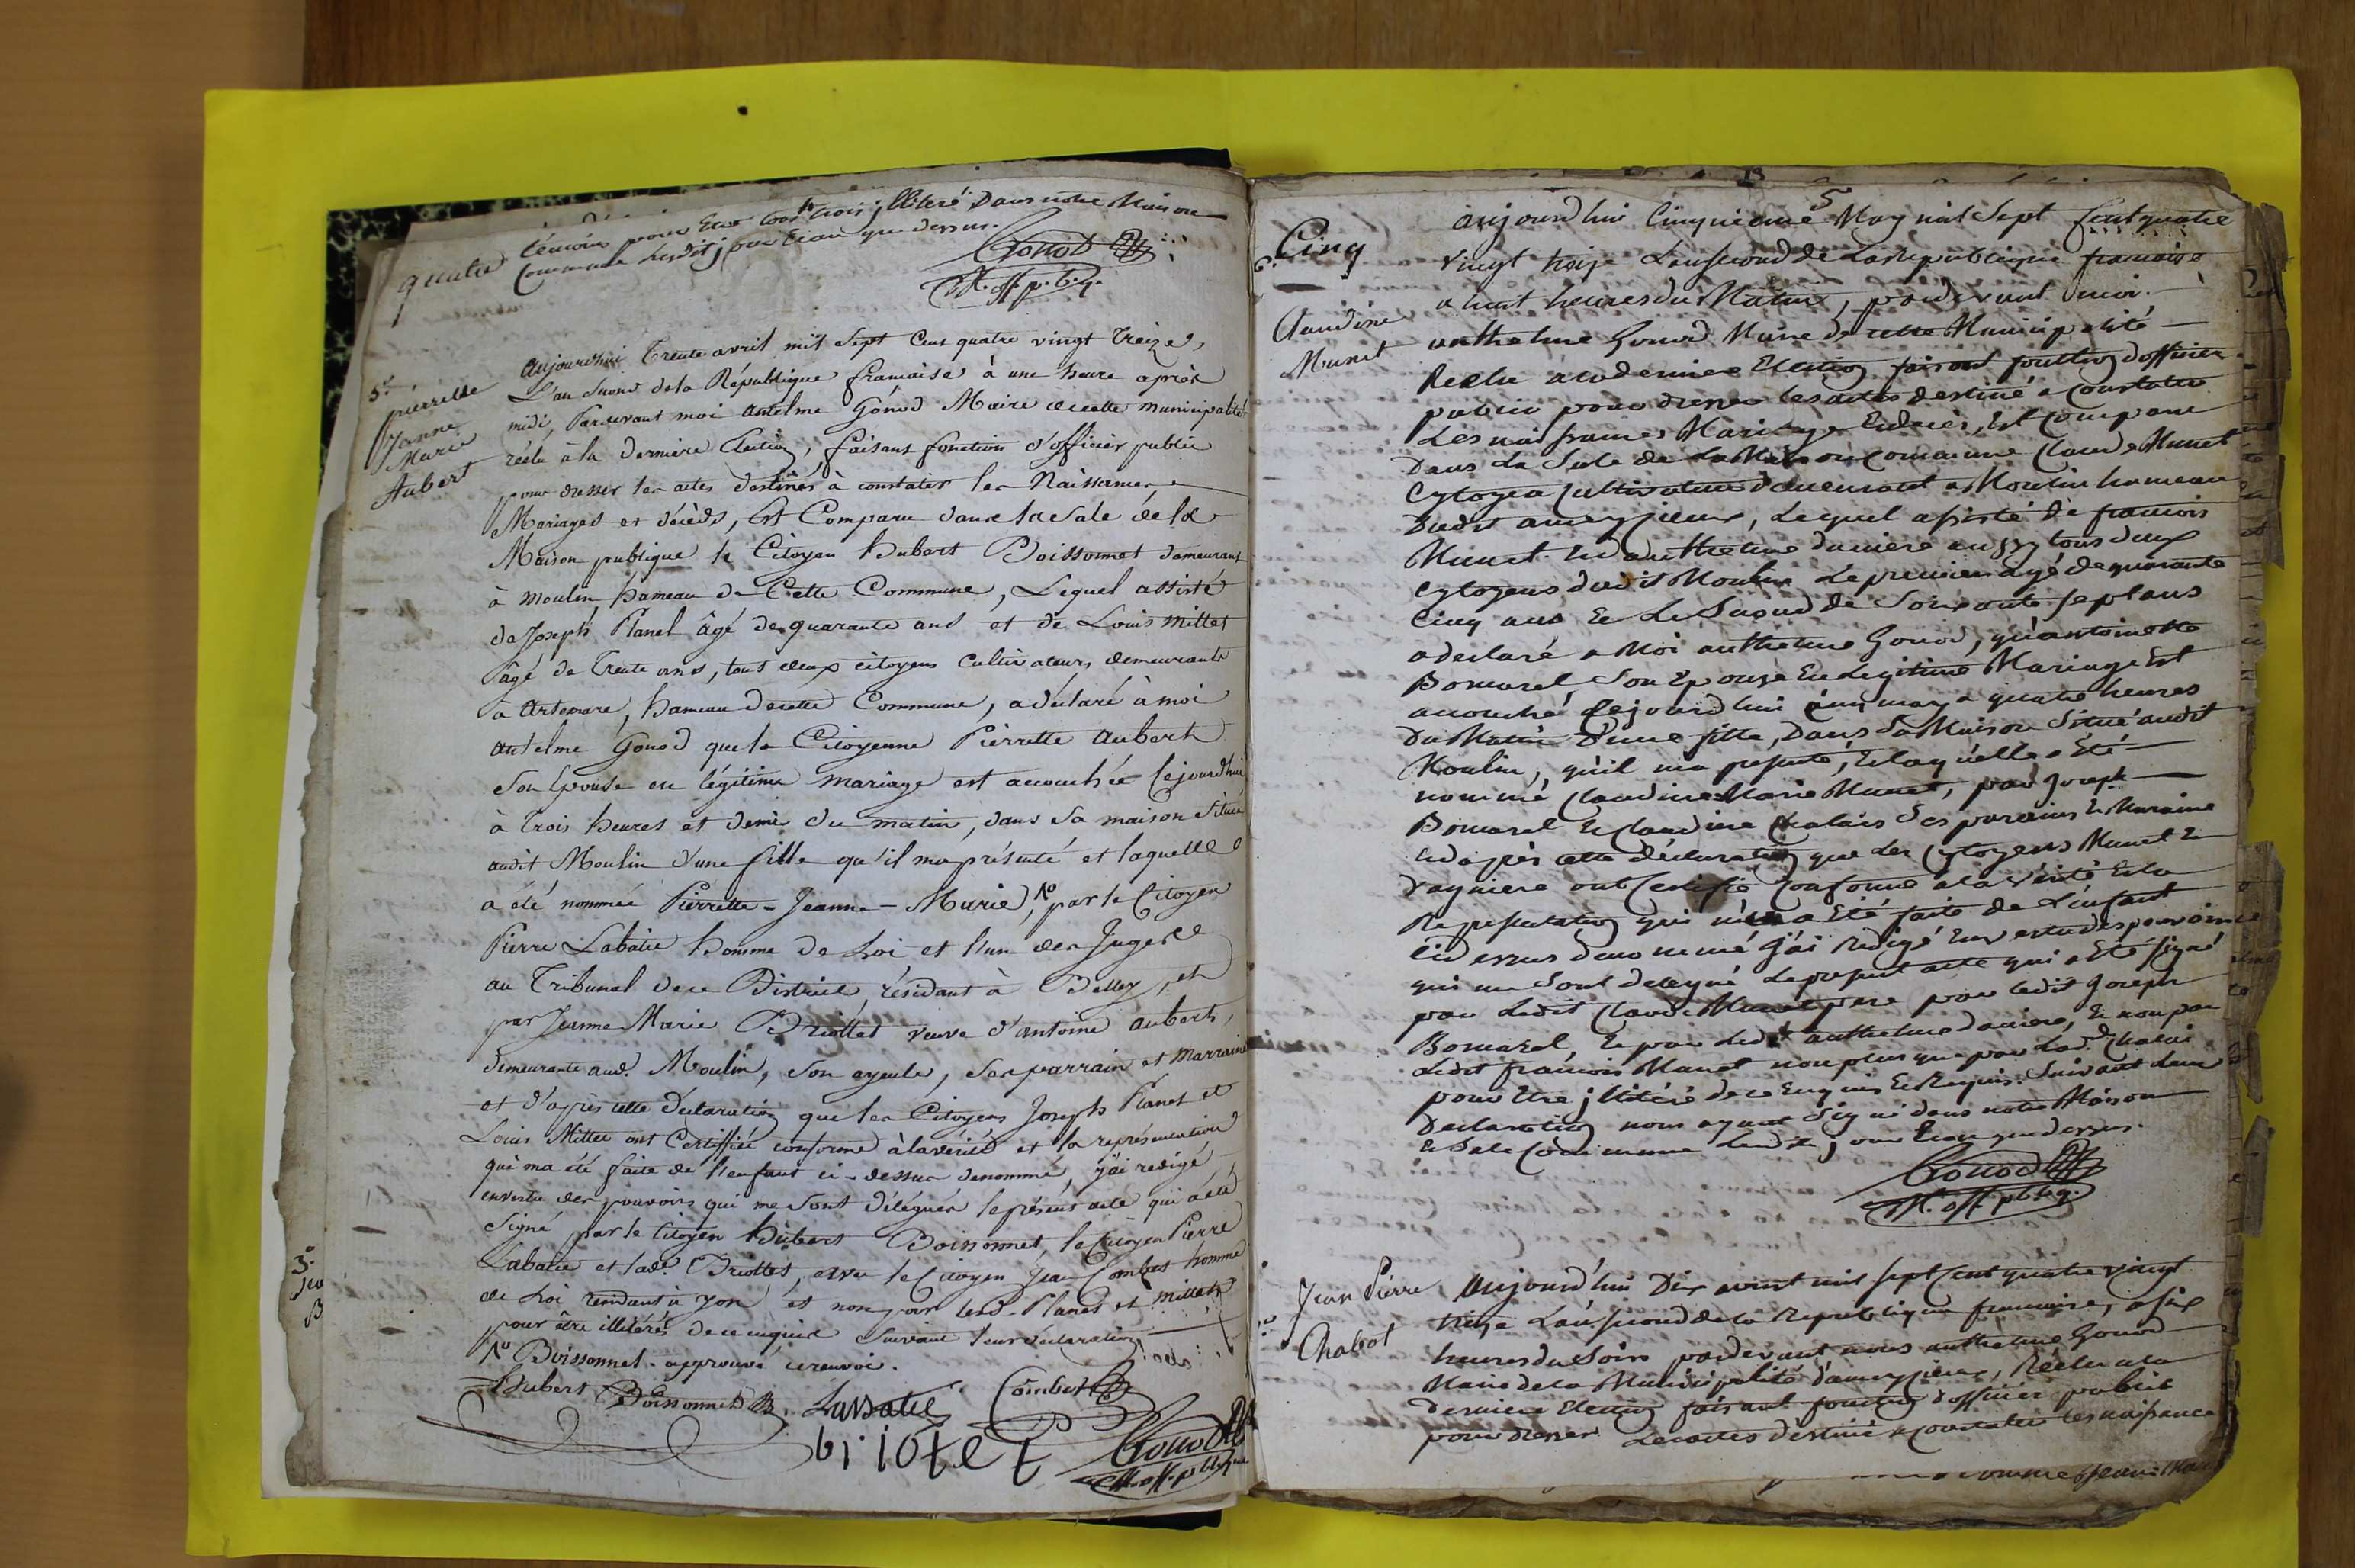 quatre témoins pour Etre tous trois jlliteré Dans notre Maison
Commune Lesdit jour Et an que dessus.
Gonod
M. off. pblq.
5e
pierrette
Jeanne
Marie
Aubert
Aujourdhui Trente avril mil Sept Cens quatre vingt Treize,
L'an Second de la République française à une heure après
midi, Pardevant moi Antelme Gonod Maire de cette municipalité
réélu à la Dernière Election, faisant fonction d'officier public
pour dresser les actes destinés à constater les Naissances,
Mariages et décèds, Est Comparu dans la Sale de la
Maison publique le Citoyen Hubert Boissonnet demeurant
à Moulin hameau de Cette Commune, Lequel assisté
de Joseph Planet âgé de quarante ans et de Louis Millet
âgé de Trente ans, tous deux citoyens Cultivateurs demeurants
à Artemare, hameau de cette Commune, a déclaré à moi
Antelme Gonod que la Citoyenne Pierrette Aubert
Son Epouse en légitime mariage est accouchée Cejourd'hui
à Trois heures et demie du matin, dans Sa maison située
audit Moulin d'une fille qu'il m'a présenté et laquelle
a été nommée Pierrette - Jeanne - Marie, par le Citoyen
Pierre Labatie homme de Loi et l'un des Juges
au Tribunal de ce District, résidant à Belley, et
par Jeanne Marie Briottet veuve d'antoine aubert,
demeurante aud. Moulin, Son ayeule, Ses parrain et Marraine
et d'après cette déclaration que les Citoyens Joseph Planet et
Louis Millet ont Certiffiée conforme à la vérité et la représentation
qui m'a été faite de l'enfant ci-dessus denommé, j'ai redigé
en vertu des pouvoirs qui me Sont Délégués le présent acte qui a été
Signé par le Citoyen Hubert Boissonnet, le Citoyen Pierre
Labatie et lade. Briottet, le Citoyen Jean Combet homme
de Loi residant à Yon et non par lesd. Planet et Millet
pour être illiterés de ce enquis Suivant leur déclaration
Boissonnet. approuvé le renvoi.
Hubert Boissonnet
Labatie
Combet
briotet
Gonod
M. off. pblique
3e
Cinq
6e
Claudine
Munet
aujourdhui Cinquieme 5 May mil Sept Cent quatre
vingt treize L'an Second de La Republique francoise
a huit heures du Matin, pardevant moi
anthelme Gonod Maire de cette Municipalité
Reelu a la derniere Election faisant fonction d'officier
public pour dresser les actes destiné a Constater
Les naissances Mariage Et décès, Est Comparu
Dans La Sale de La Maison Commune Claude Munet
Cytoyen Cultivateur demeurant a Moulin hameau
Dudit ameyzieux, Lequel assisté de francois
Munet Et d'anthelme daniere aussy tous deux
Cytoyens dudit Moulin Le premier agé de quarante
Cinq ans Et Le Second de Soixante Sept ans
a declaré a Moi anthelme Gonod, qu'antoinette
Bomarel Son Epouse En Legitime Mariage Est
accouché Cejourdhui Cinq may a quatre heures
Du Matin D'une fille, Dans Sa Maison Situé audit
Moulin, qu'il ma présenté, Et laquelle a Eté
nommé Claudine Marie Munet, par Joseph
Bomarel Et Claudine Chalais Ses parains Et Maraine
Et d'après cette déclaration que Les Cytoyens Munet Et
Dagniere ont Certifié Conforme à la vérité Et la
Representation qui m'a Eté faite de L'enfant
Ci dessus denommé j'ai Redigé En vertu des pouvoirs
qui me Sont delegué Le present acte qui a Eté Signé
par Ledit Claude Munet pere par ledit Joseph
Bomarel, Et par Ledit anthelme daniere, Et non par
Ledit francois Munet non plus que par Lad. Chalais
pour Etre jlliteré de ce Enquis Et Requis. Suivant Leur
Declaration nous ayant Signé dans notre Maison
Et Sale Commune Lesdit jour Et an que dessus.
Gonod
M. off. pbliq.
Jean Pierre
Chabot
Aujourd'hui Dix mil Sept Cent quatre vingt
treize L'an Second de la Republique francoise, a Six
heures du Soir pardevant nous anthelme Gonod
Maire de la Municipalité d'ameyzieux, Réélu a la
derniere Election faisant fonction d'officier public
pour dresser Les actes destiné a Constater les naissance